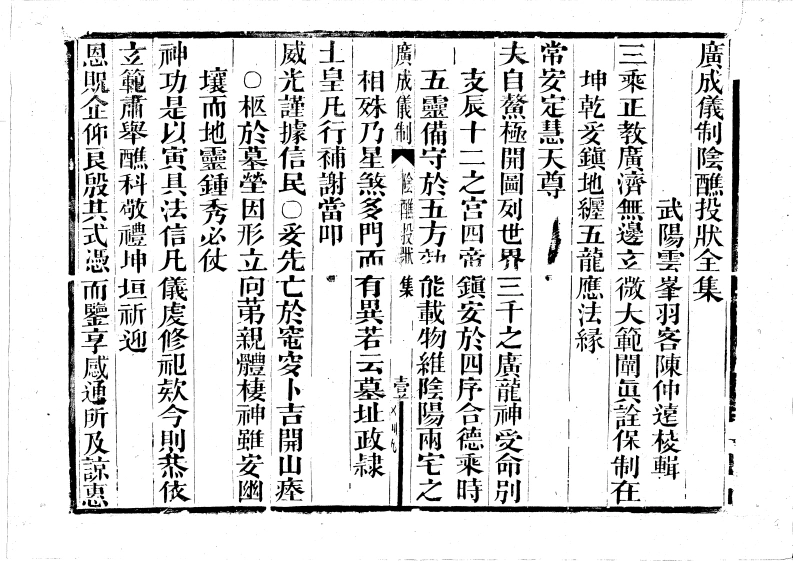 廣成儀制陰醮投狀全集
武陽雲峯羽客陳仲遠校輯
三乘正教廣濟無邊玄微大範闡眞詮保制在
坤乾妥鎭地纒五龍應法緣
常安定慧天尊
夫自鰲極開圖列世界三千之廣龍神受命別
支辰十二之宮四帝鎭安於四序合德乘時
五靈備守於五方効能載物維陰陽兩宅之
廣成儀制 陰醮投狀 集 壹
相殊乃星煞多門而有異若云墓址政隸
土皇凡行補謝當叩
威光謹據信民○妥先亡於窀穸卜吉開山瘞
○柩於墓塋因形立向第親體棲神雖安幽
壤而地靈鍾秀必仗
神功是以寅具法信凡儀虔修祀欵今則恭依
玄範肅舉醮科敬禮坤垣祈迎
恩貺企仰良殷共式憑而鑒享感通所及諒惠